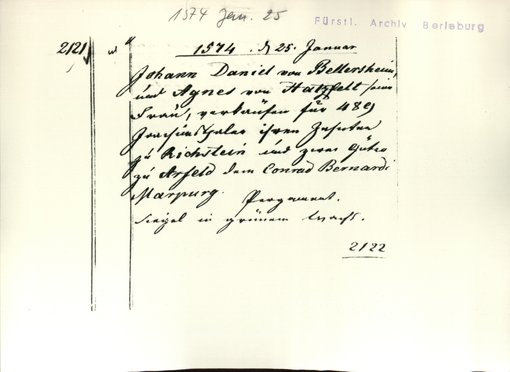 1574 Jan. 25
Fürstl. Archiv Berleburg
2121
1574. d 25. Januar
Johann Daniel von Bellersheim,
und Agnes von Hatzfelt seine
Frau, verkaufen für 489
Joachimsthaler ihren Zehnten
zu Richstein und zwei Güter
zu Arfeld dem Conrad Bernardi
Marpurg. Pergament.
Siegel in grünem Wachs.
2122